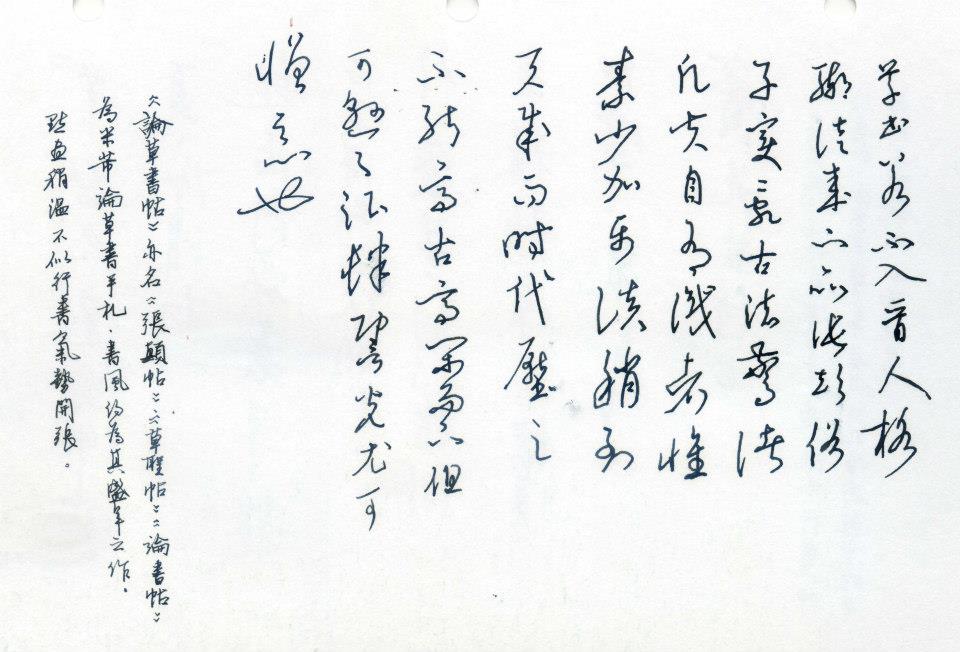 草書若不入晉人格
輒徒成下品張顛俗
子變亂古法驚諸
凡夫自有識者懷
素少加平淡稍到
天成而時代壓之
不能高古高閑而下但
可懸之酒肆䛒光尤可
憎惡也
《論草書帖》亦名《張顛帖》《草聖帖》《論書帖》
為米芾論草書手札．書風約為其盛年之作．
點畫稍溫不似行書氣勢開張。